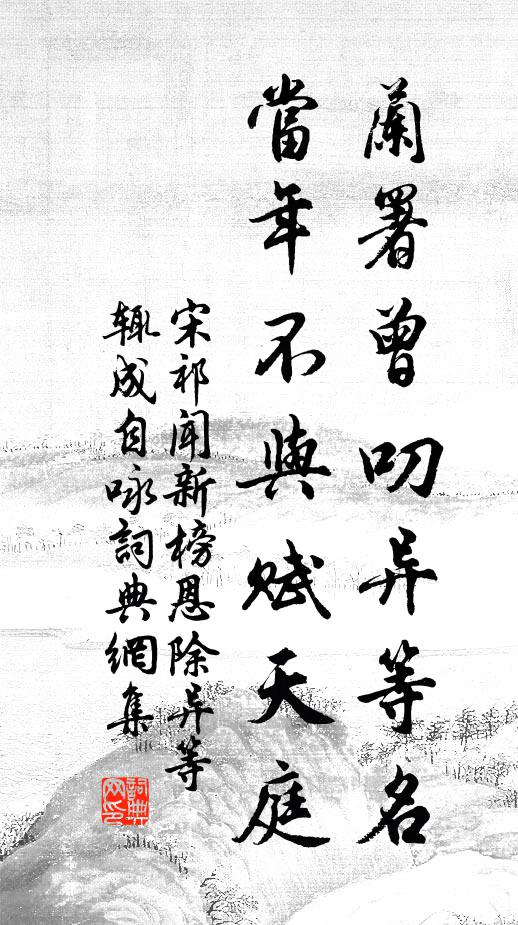 蘭署曾叨异等名
當年不與賦天庭
宋祁聞新榜恩除异等
輒成自咏詞典網集
詞典网印